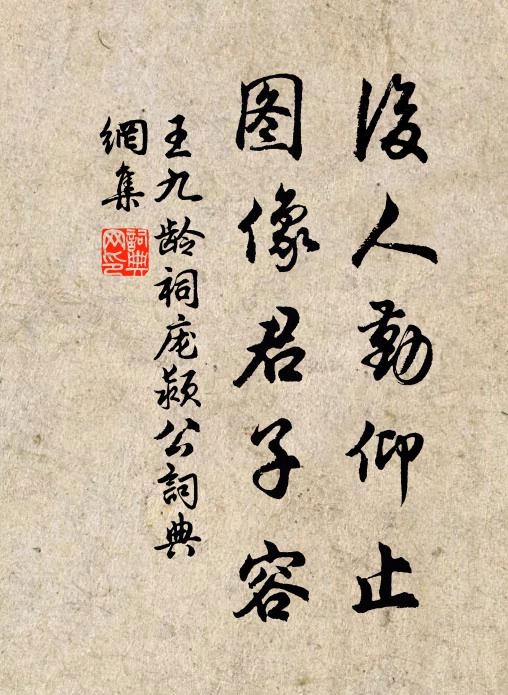 後人勤仰止
图像君子容
王九龄祠庞颖公詞典
網集
詞典網印